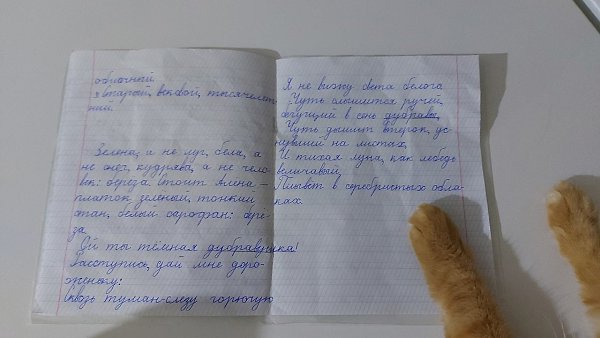 обычный.
старый, вековой, тысячелет-
ний.
Зелена, а не луг, бела, а
не снег, кудрява, а не чело-
век: береза. Стоит Алена –
платок зеленый, тонкий
стан, белый сарафан: бере-
за.
Ой ты тёмная дубравушка!
Расступись, дай мне доро-
женьку:
Сквозь туман-слезу горючую
Я не вижу света белого
Чуть слышится ручей,
бегущий в сень дубравы,
Чуть дышит ветерок, ус-
нувший на листах,
И тихая луна, как лебедь
величавый,
Плывёт в серебристых обла-
ках.